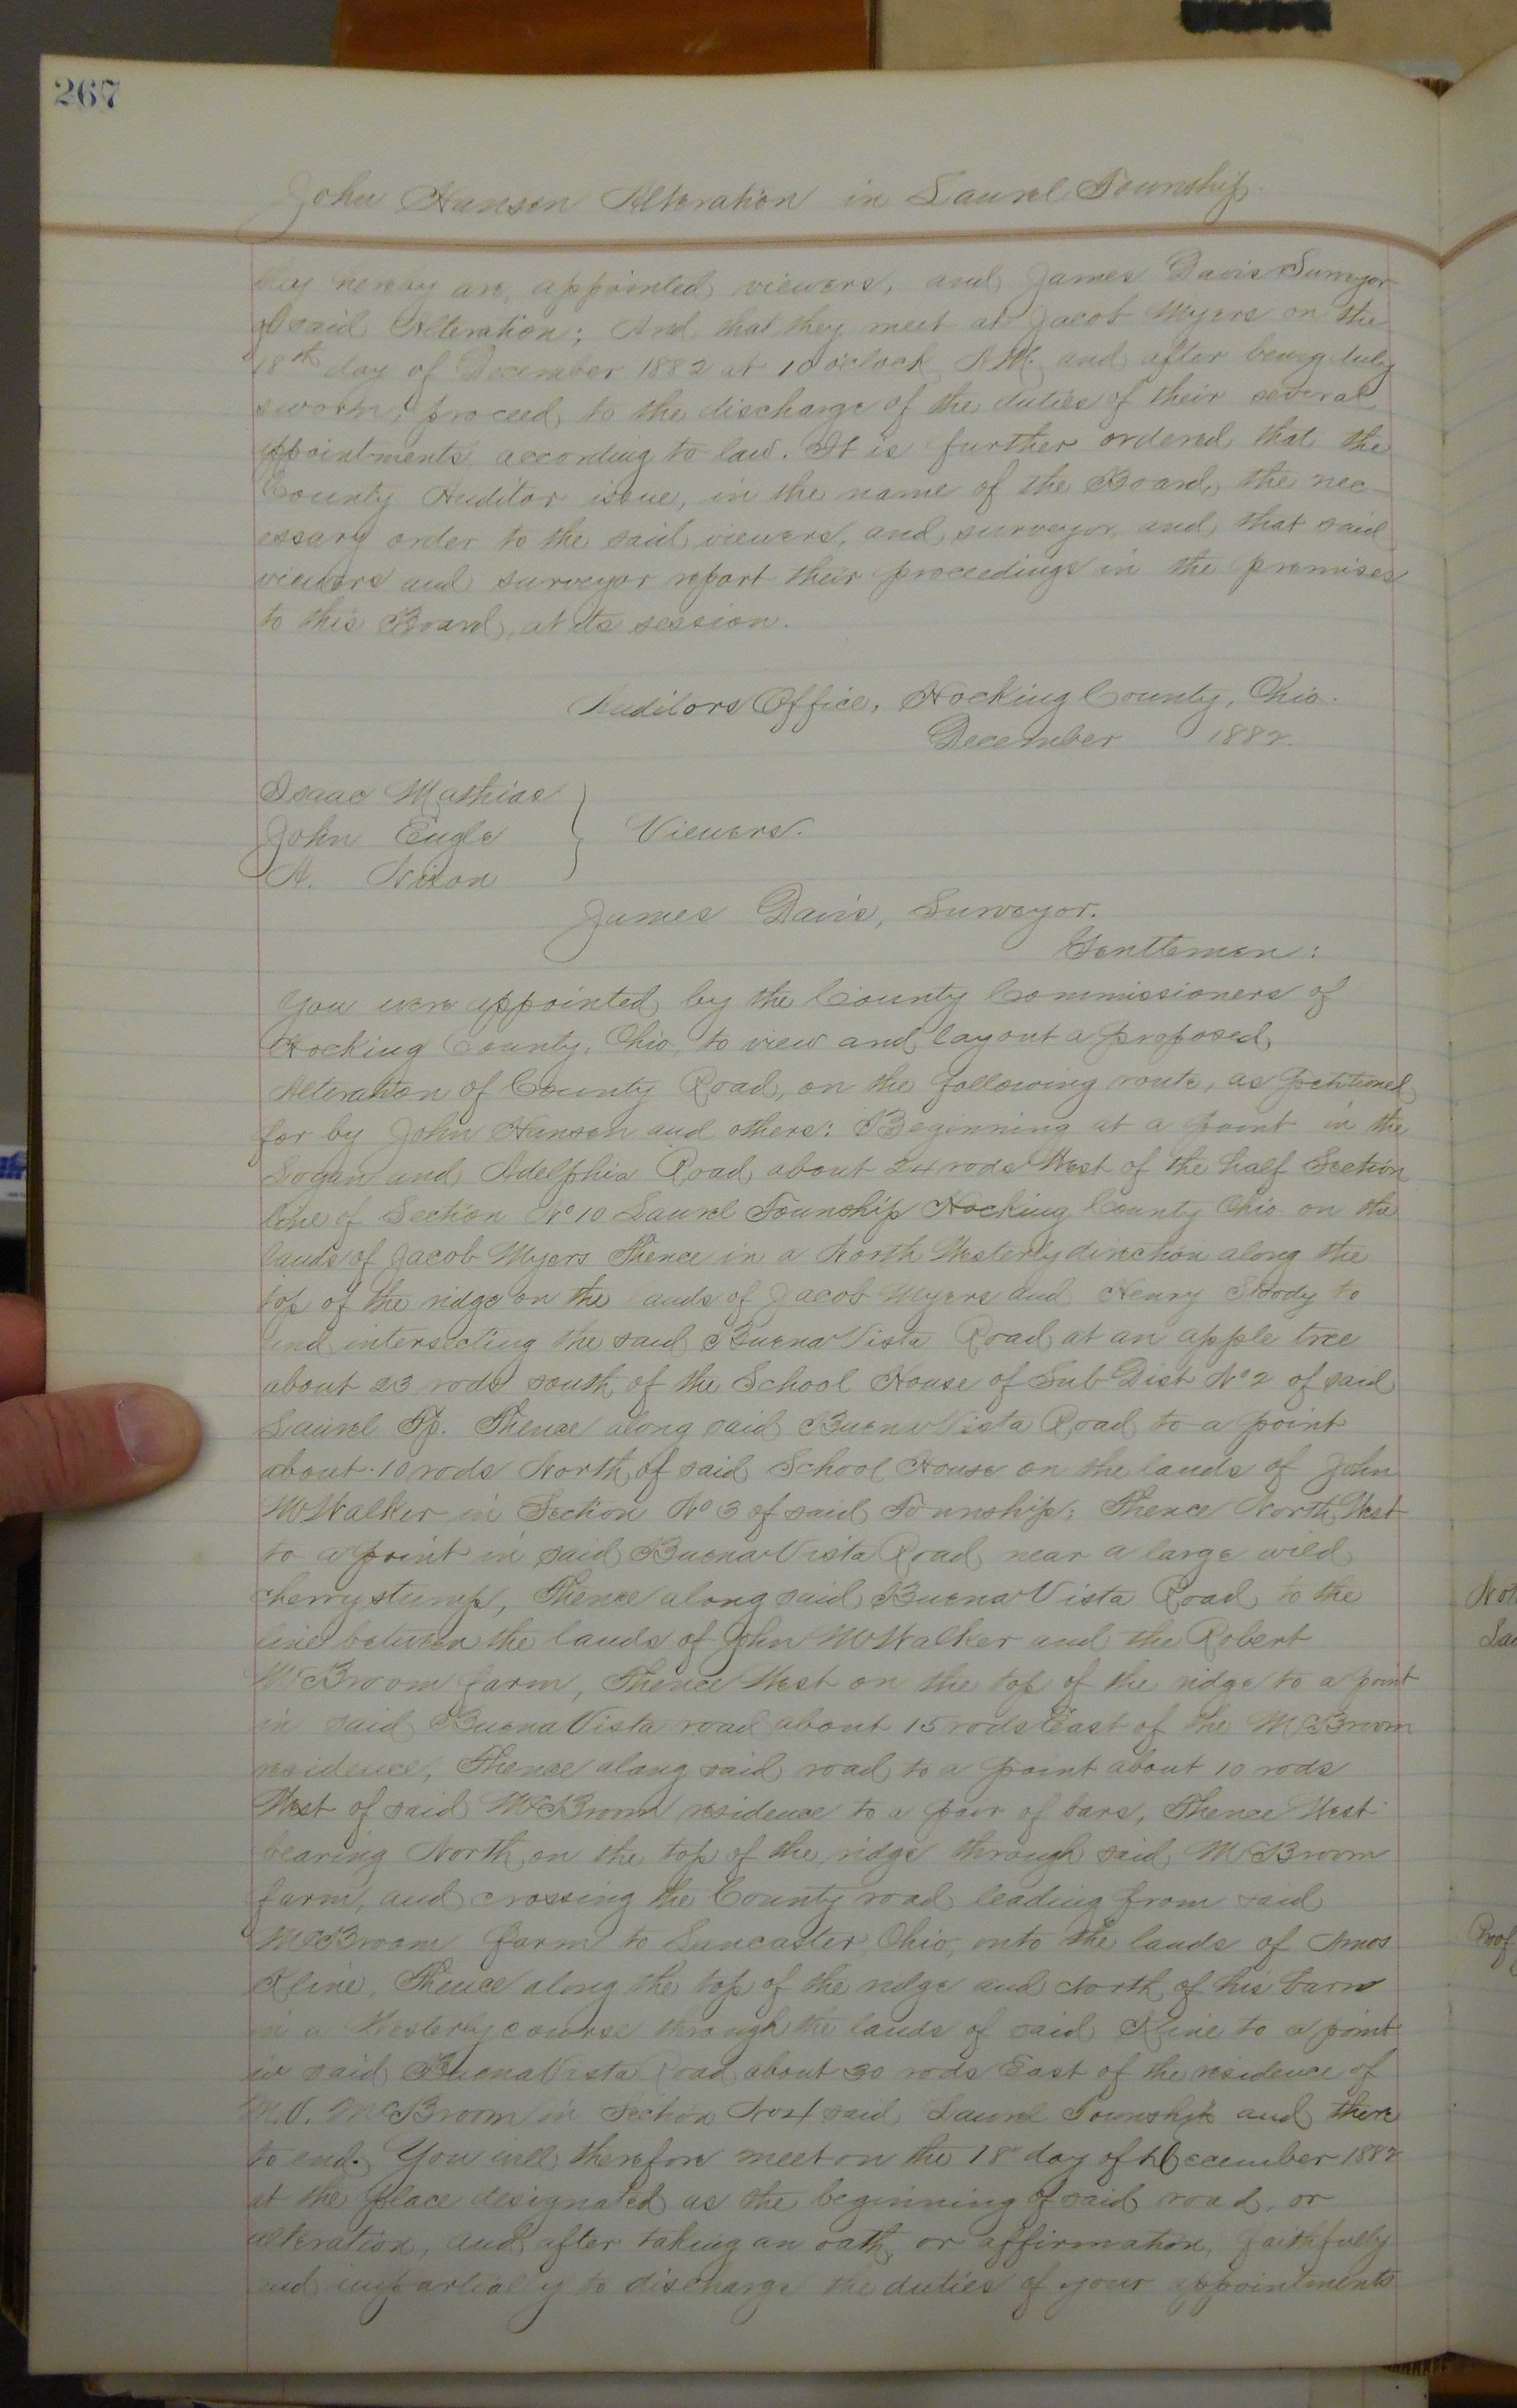 267
John Hanson Alteration in Laurel Township.
they hereby are, appointed viewers, and James Davis Surveyor
of said Alteration; And that they meet at Jacob Myers on the
18th day of December 1882 at 10 o'clock A.M. and after being duly
sworn, proceed to the discharge of the duties of their several
appointments according to law. It is further ordered that the
County Auditor issue, in the name of the Board, the nec-
essary order to the said viewers, and surveyor, and that said
viewers and surveyor report their proceedings in the premises
to this Board, at its session.
Auditors Office, Hocking County, Ohio.
December 1882.
Isaac Mathias
John Engle } Viewers.
A. Nixon
James Davis, Surveyor.
Gentlemen:
You were appointed by the County Commissioners of
Hocking County, Ohio, to view and layout a proposed
Alteration of County Road, on the following route, as petitioned
for by John Hanson and others: Beginning at a point in the
Logan and Adelphia Road about 24 rods West of the half Section
line of Section No 10 Laurel Township Hocking County Ohio on the
lands of Jacob Myers Thence in a North Westerly direction along the
top of the ridge on the lands of Jacob Myers and Henry to
and intersecting the said Buena Vista Road at an apple tree
about 23 rods south of the School House of Sub Dist No 2 of said
Laurel Tp. Thence along said Buena Vista Road to a point
about 10 rods North of said School House on the lands of John
McWalker in Section No 3 of said Township; Thence North West
to a point in said Buena Vista Road near a large wild
cherry stump, Thence along said Buena Vista Road to the
line between the lands of John McWalker and the Robert
McBroom farm, Thence West on the top of the ridge to a point
in said Buena Vista road about 15 rods East of the McBroom
residence, Thence along said road to a point about 10 rods
West of said McBroom residence to a pair of bars, Thence West
bearing North on the top of the ridge through said McBroom
farm, and crossing the County road leading from said
McBroom farm to Lancaster, Ohio, onto the lands of Amos
Kline, Thence along the top of the ridge and North of his barn
in a Westerly course through the lands of said Kline to a point
in said Buena Vista Road about 30 rods East of the residence of
McBroom in Section No 4 said Laurel Township and there
to end. You will therefore meet on the 18" day of December 1882
at the place designated as the beginning of said road, or
alteration, and after taking an oath, or affirmation, faithfully
and impartially to discharge the duties of your appointments